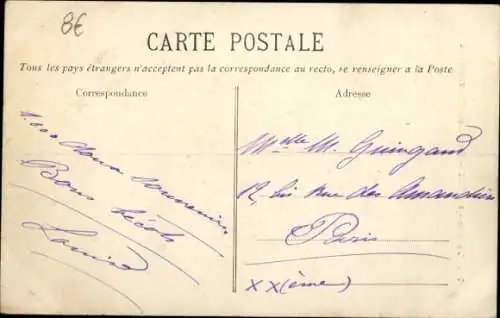 8€
CARTE POSTALE
Tous les pays étrangers n'acceptent pas la correspondance au recto, se renseigner a la Poste
Correspondance
Adresse
1.000 doux souvenirs
Bons
Melle M. Guingand
12 bis Rue des Amandiers
Paris
XX (ème)